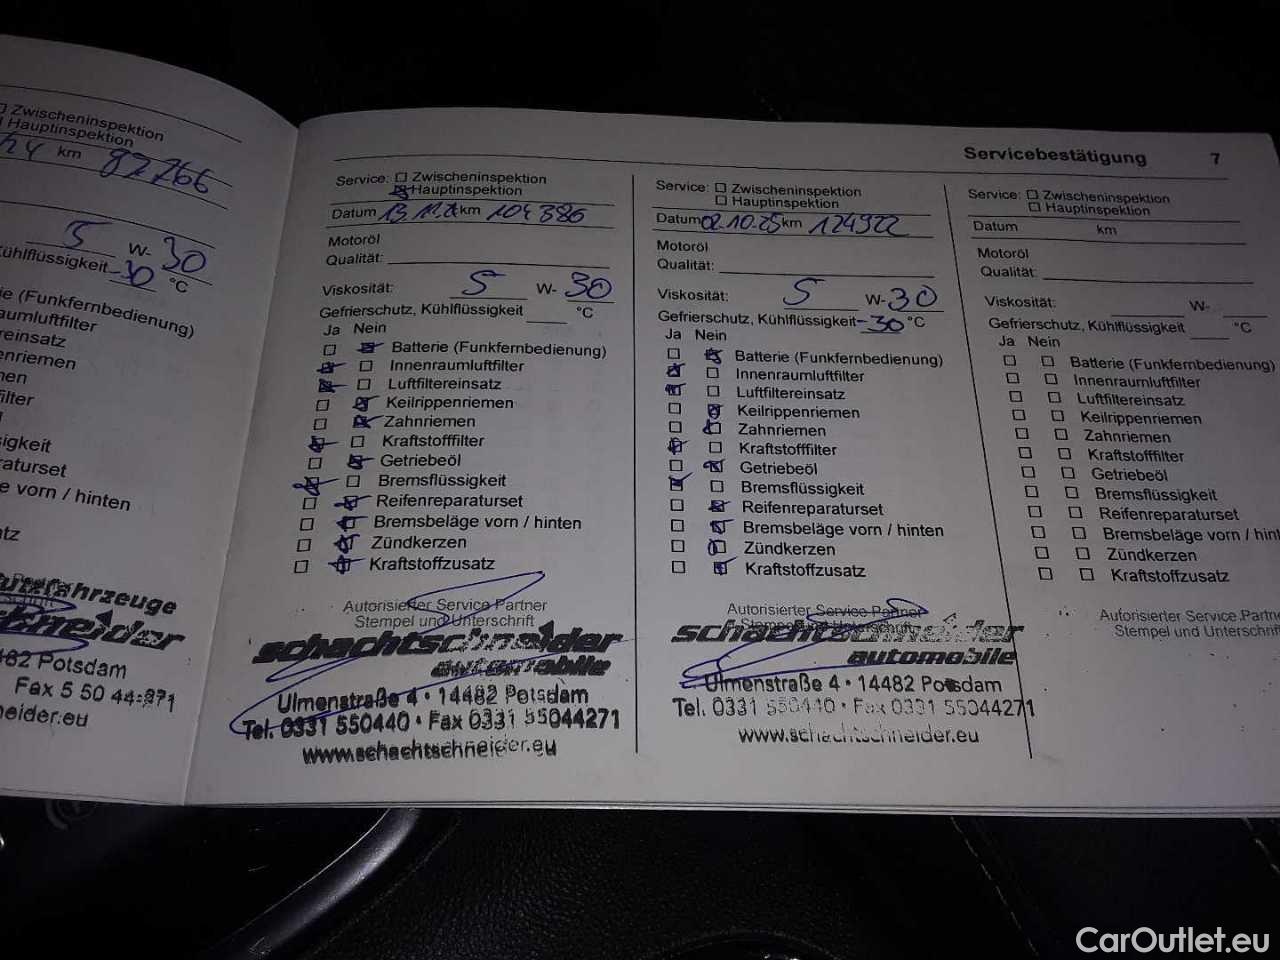 Zwischeninspektion
Hauptinspektion
24 km 82766
5 W- 30
Kühlflüssigkeit -30 °C
(Funkfernbedienung)
aumluftfilter
reinsatz
enriemen
men
filter
l
igkeit
raturset
e vorn / hinten
tz
hneider
482 Potsdam
Fax 5 50 44-271
neider.eu
Servicebestätigung 7
Service: Zwischeninspektion
Hauptinspektion
Datum 13.11.24 km 104386
Motoröl
Qualität:
Viskosität: 5 W- 30
Gefrierschutz, Kühlflüssigkeit °C
Ja Nein
Batterie (Funkfernbedienung)
Innenraumluftfilter
Luftfiltereinsatz
Keilrippenriemen
Zahnriemen
Kraftstofffilter
Getriebeöl
Bremsflüssigkeit
Reifenreparaturset
Bremsbeläge vorn / hinten
Zündkerzen
Kraftstoffzusatz
Autorisierter Service Partner
Stempel und Unterschrift
schachtschneider
automobile
Ulmenstraße 4 • 14482 Potsdam
Tel. 0331 550440 • Fax 0331 55044271
www.schachtschneider.eu
Service: Zwischeninspektion
Hauptinspektion
Datum 02.10.25 km 124922
Motoröl
Qualität:
Viskosität: 5 W- 30
Gefrierschutz, Kühlflüssigkeit -30 °C
Ja Nein
Batterie (Funkfernbedienung)
Innenraumluftfilter
Luftfiltereinsatz
Keilrippenriemen
Zahnriemen
Kraftstofffilter
Getriebeöl
Bremsflüssigkeit
Reifenreparaturset
Bremsbeläge vorn / hinten
Zündkerzen
Kraftstoffzusatz
Autorisierter Service Partner
Stempel und Unterschrift
schachtschneider
automobile
Ulmenstraße 4 • 14482 Potsdam
Tel. 0331 550440 • Fax 0331 55044271
www.schachtschneider.eu
Service: Zwischeninspektion
Hauptinspektion
Datum km
Motoröl
Qualität:
Viskosität: W-
Gefrierschutz, Kühlflüssigkeit °C
Ja Nein
Batterie (Funkfernbedienung)
Innenraumluftfilter
Luftfiltereinsatz
Keilrippenriemen
Zahnriemen
Kraftstofffilter
Getriebeöl
Bremsflüssigkeit
Reifenreparaturset
Bremsbeläge vorn / hint
Zündkerzen
Kraftstoffzusatz
Autorisierter Service Partne
Stempel und Unterschrift
CarOutlet.eu